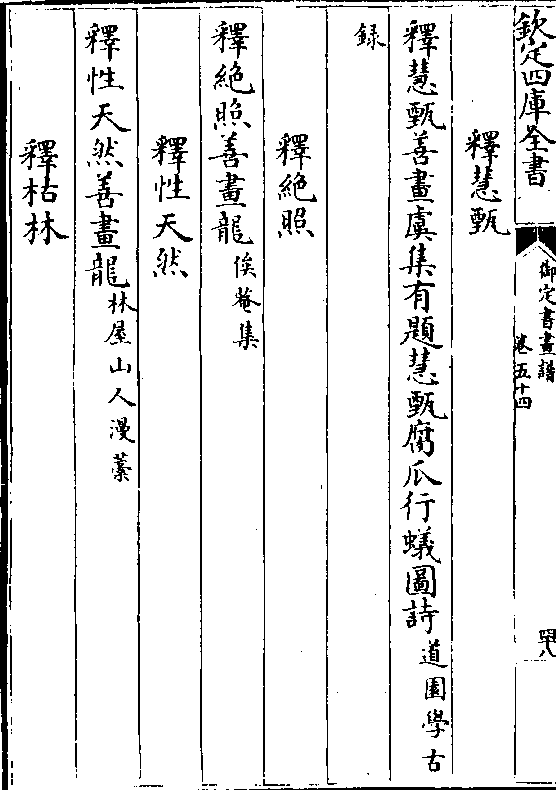 欽定四庫全書
御定書畫譜
卷五十四
四八
釋慧甄
釋慧甄善畫虞集有題慧甄腐瓜行蟻圖詩道園學古
録
釋絶照
釋絶照善畫龍俟菴集
釋性天然
釋性天然善畫龍林屋山人漫藁
釋枯林